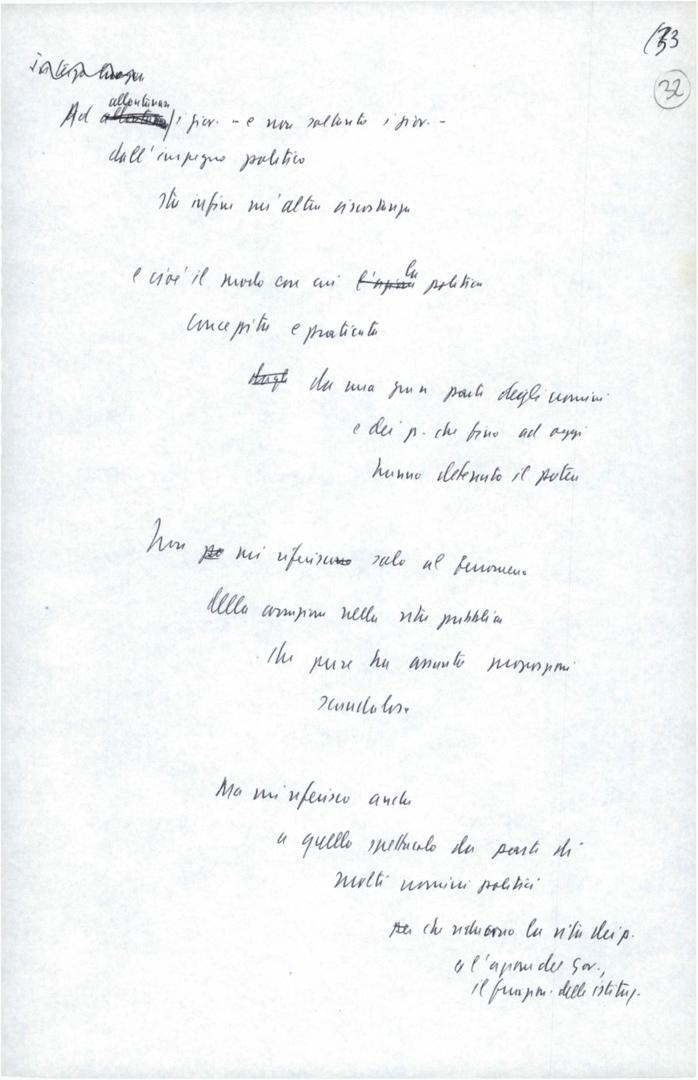 33
32
Ad allontanare i giov. - e non soltanto i giov. -
dall'impegno politico
sta infine un'altra circostanza
e cioè il modo con cui la politica
concepita e praticata
da una gran parte degli uomini
e dei p. che fino ad oggi
hanno detenuto il potere
Non mi riferisco solo al fenomeno
della corruzione nella vita pubblica
che pure ha assunto proporzioni
scandalose
Ma mi riferisco anche
a quello spettacolo da parte di
molti uomini politici
che riducono la vita dei p.
e l'azione dei gov.,
il funzion. delle istituz.